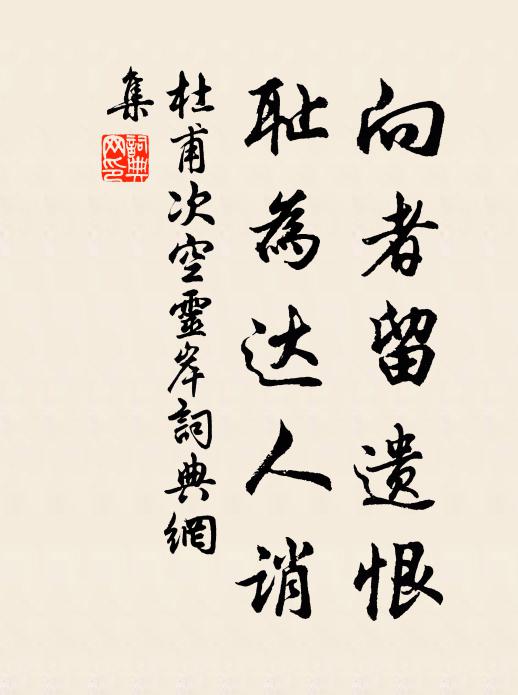 向者留遗恨
耻為达人诮
杜甫次空靈岸詞典網
集
詞典
网印